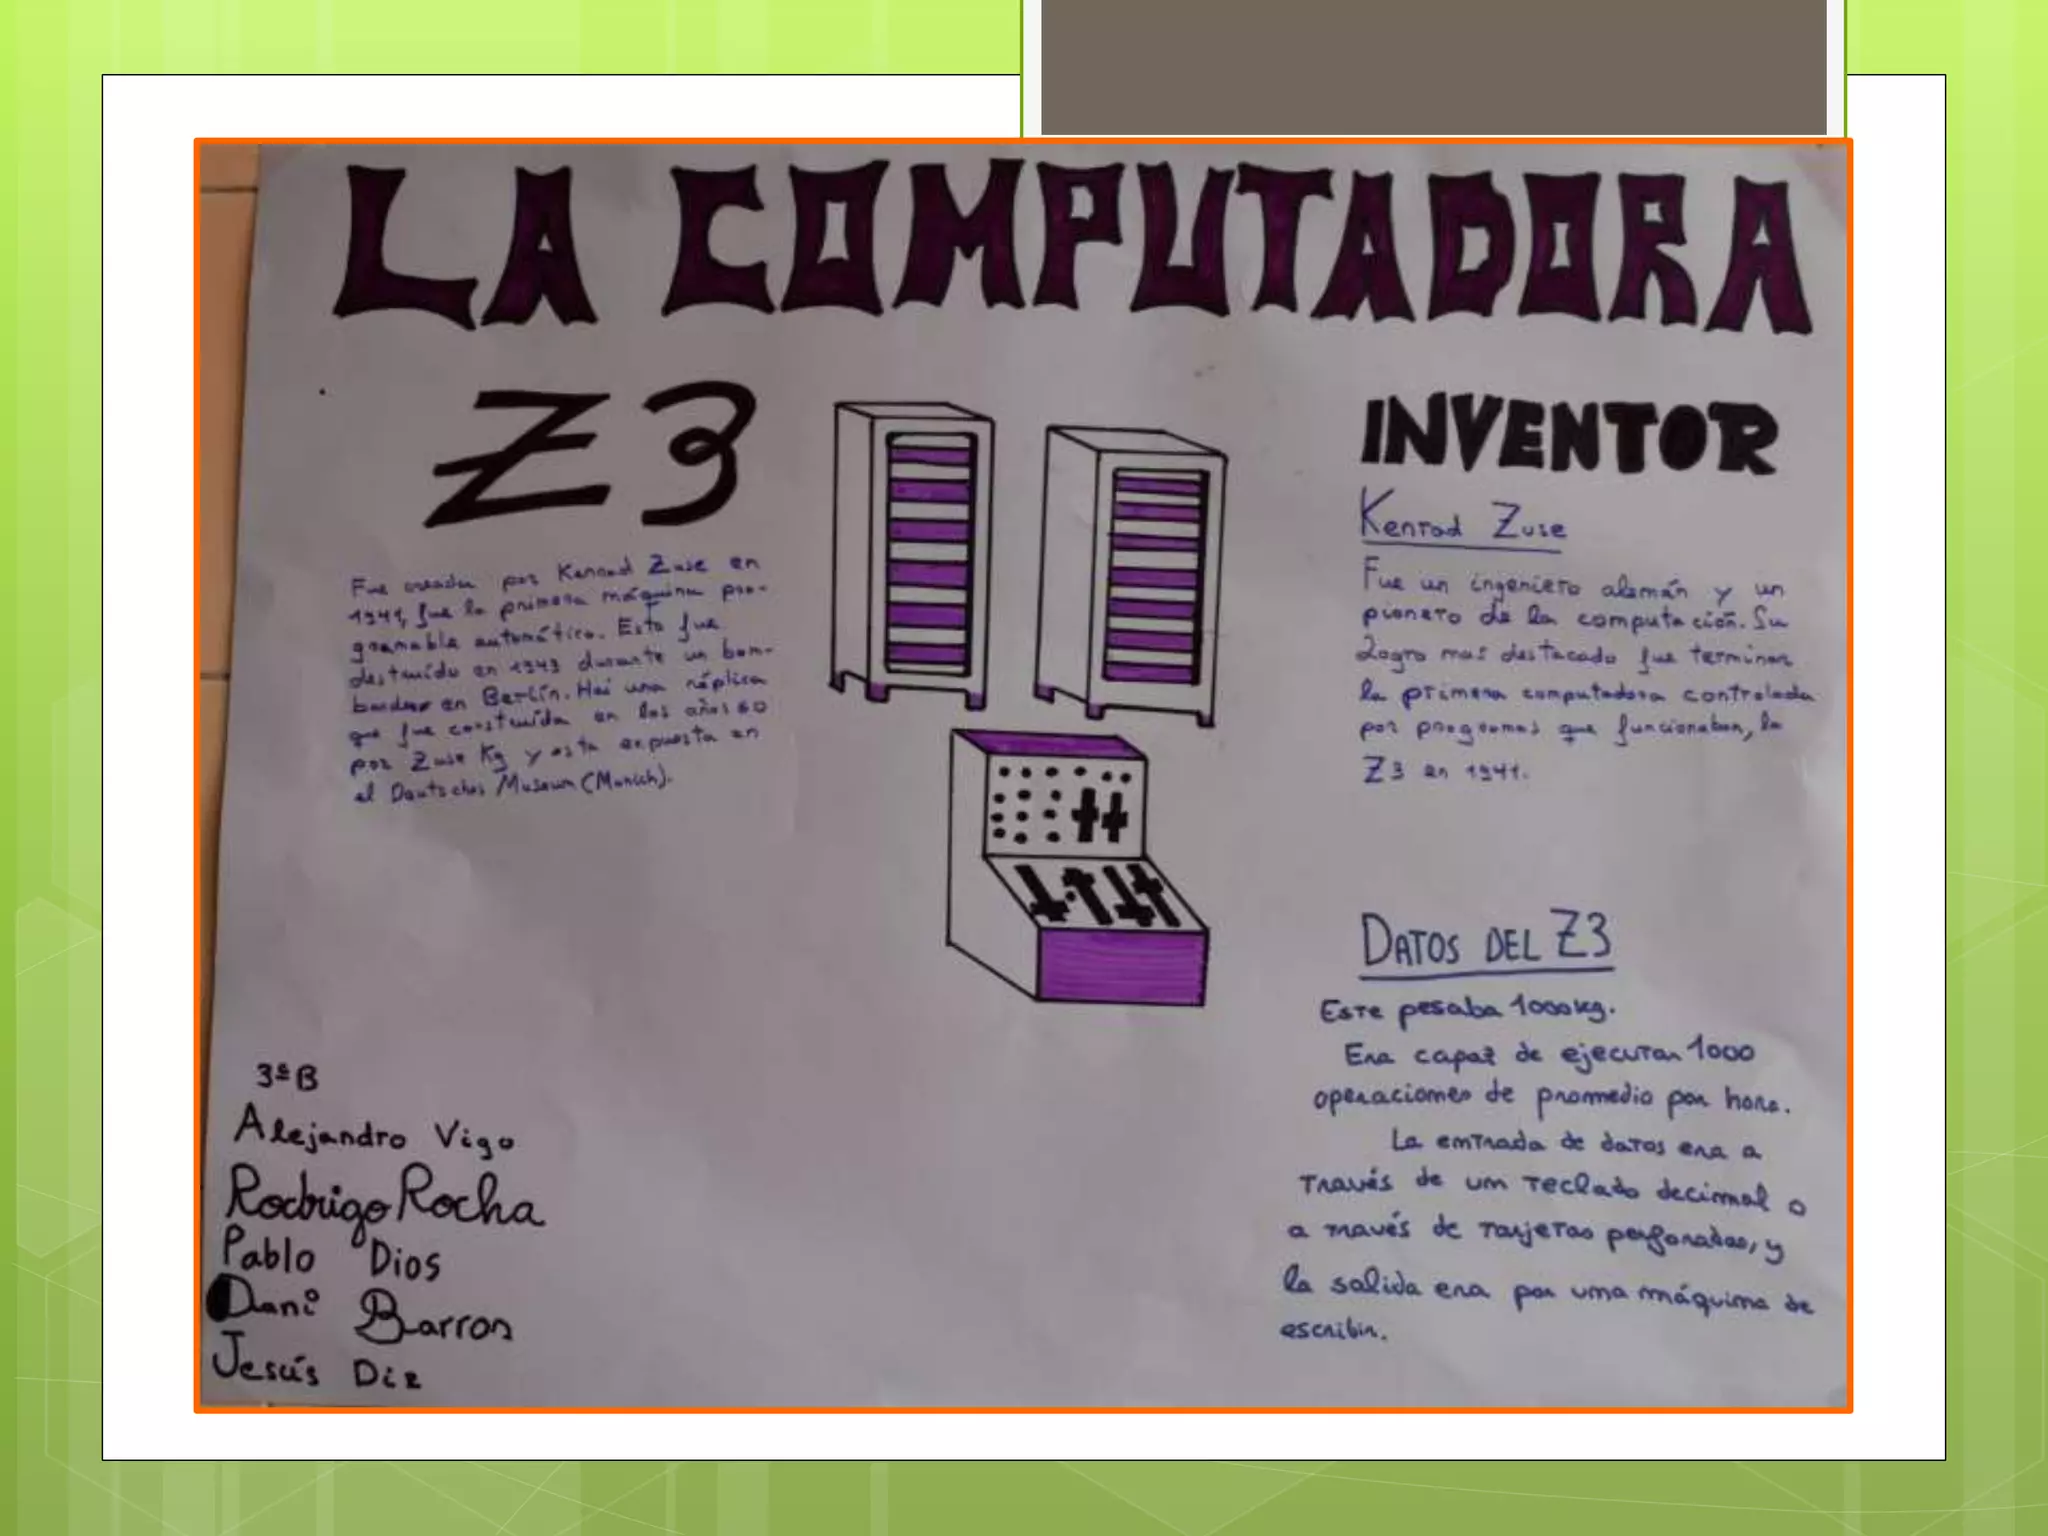 LA COMPUTADORA
Z3
Fue creada por Kenrad Zuse en
1941, fue la primera máquina pro-
gramable automática. Esta fue
destruída en 1943 durante un bom-
bardeo en Berlín. Hai una réplica
que fue construída en los años 60
por Zuse Kg y esta expuesta en
el Deutsches Museum (Munich).
INVENTOR
Kenrad Zuse
Fue un ingeniero alemán y un
pionero de la computación. Su
Logro mas destacado fue terminar
la primera computadora controlada
por programas que funcionaban, la
Z3 en 1941.
DATOS DEL Z3
Este pesaba 1000kg.
Era capaz de ejecutar 1000
operaciones de promedio por hora.
La entrada de datos era a
través de un teclado decimal o
a través de tarjetas perforadas, y
la salida era por una máquina de
escribir.
3ºB
Alejandro Vigo
Rodrigo Rocha
Pablo Dios
Dani Barros
Jesús Diz